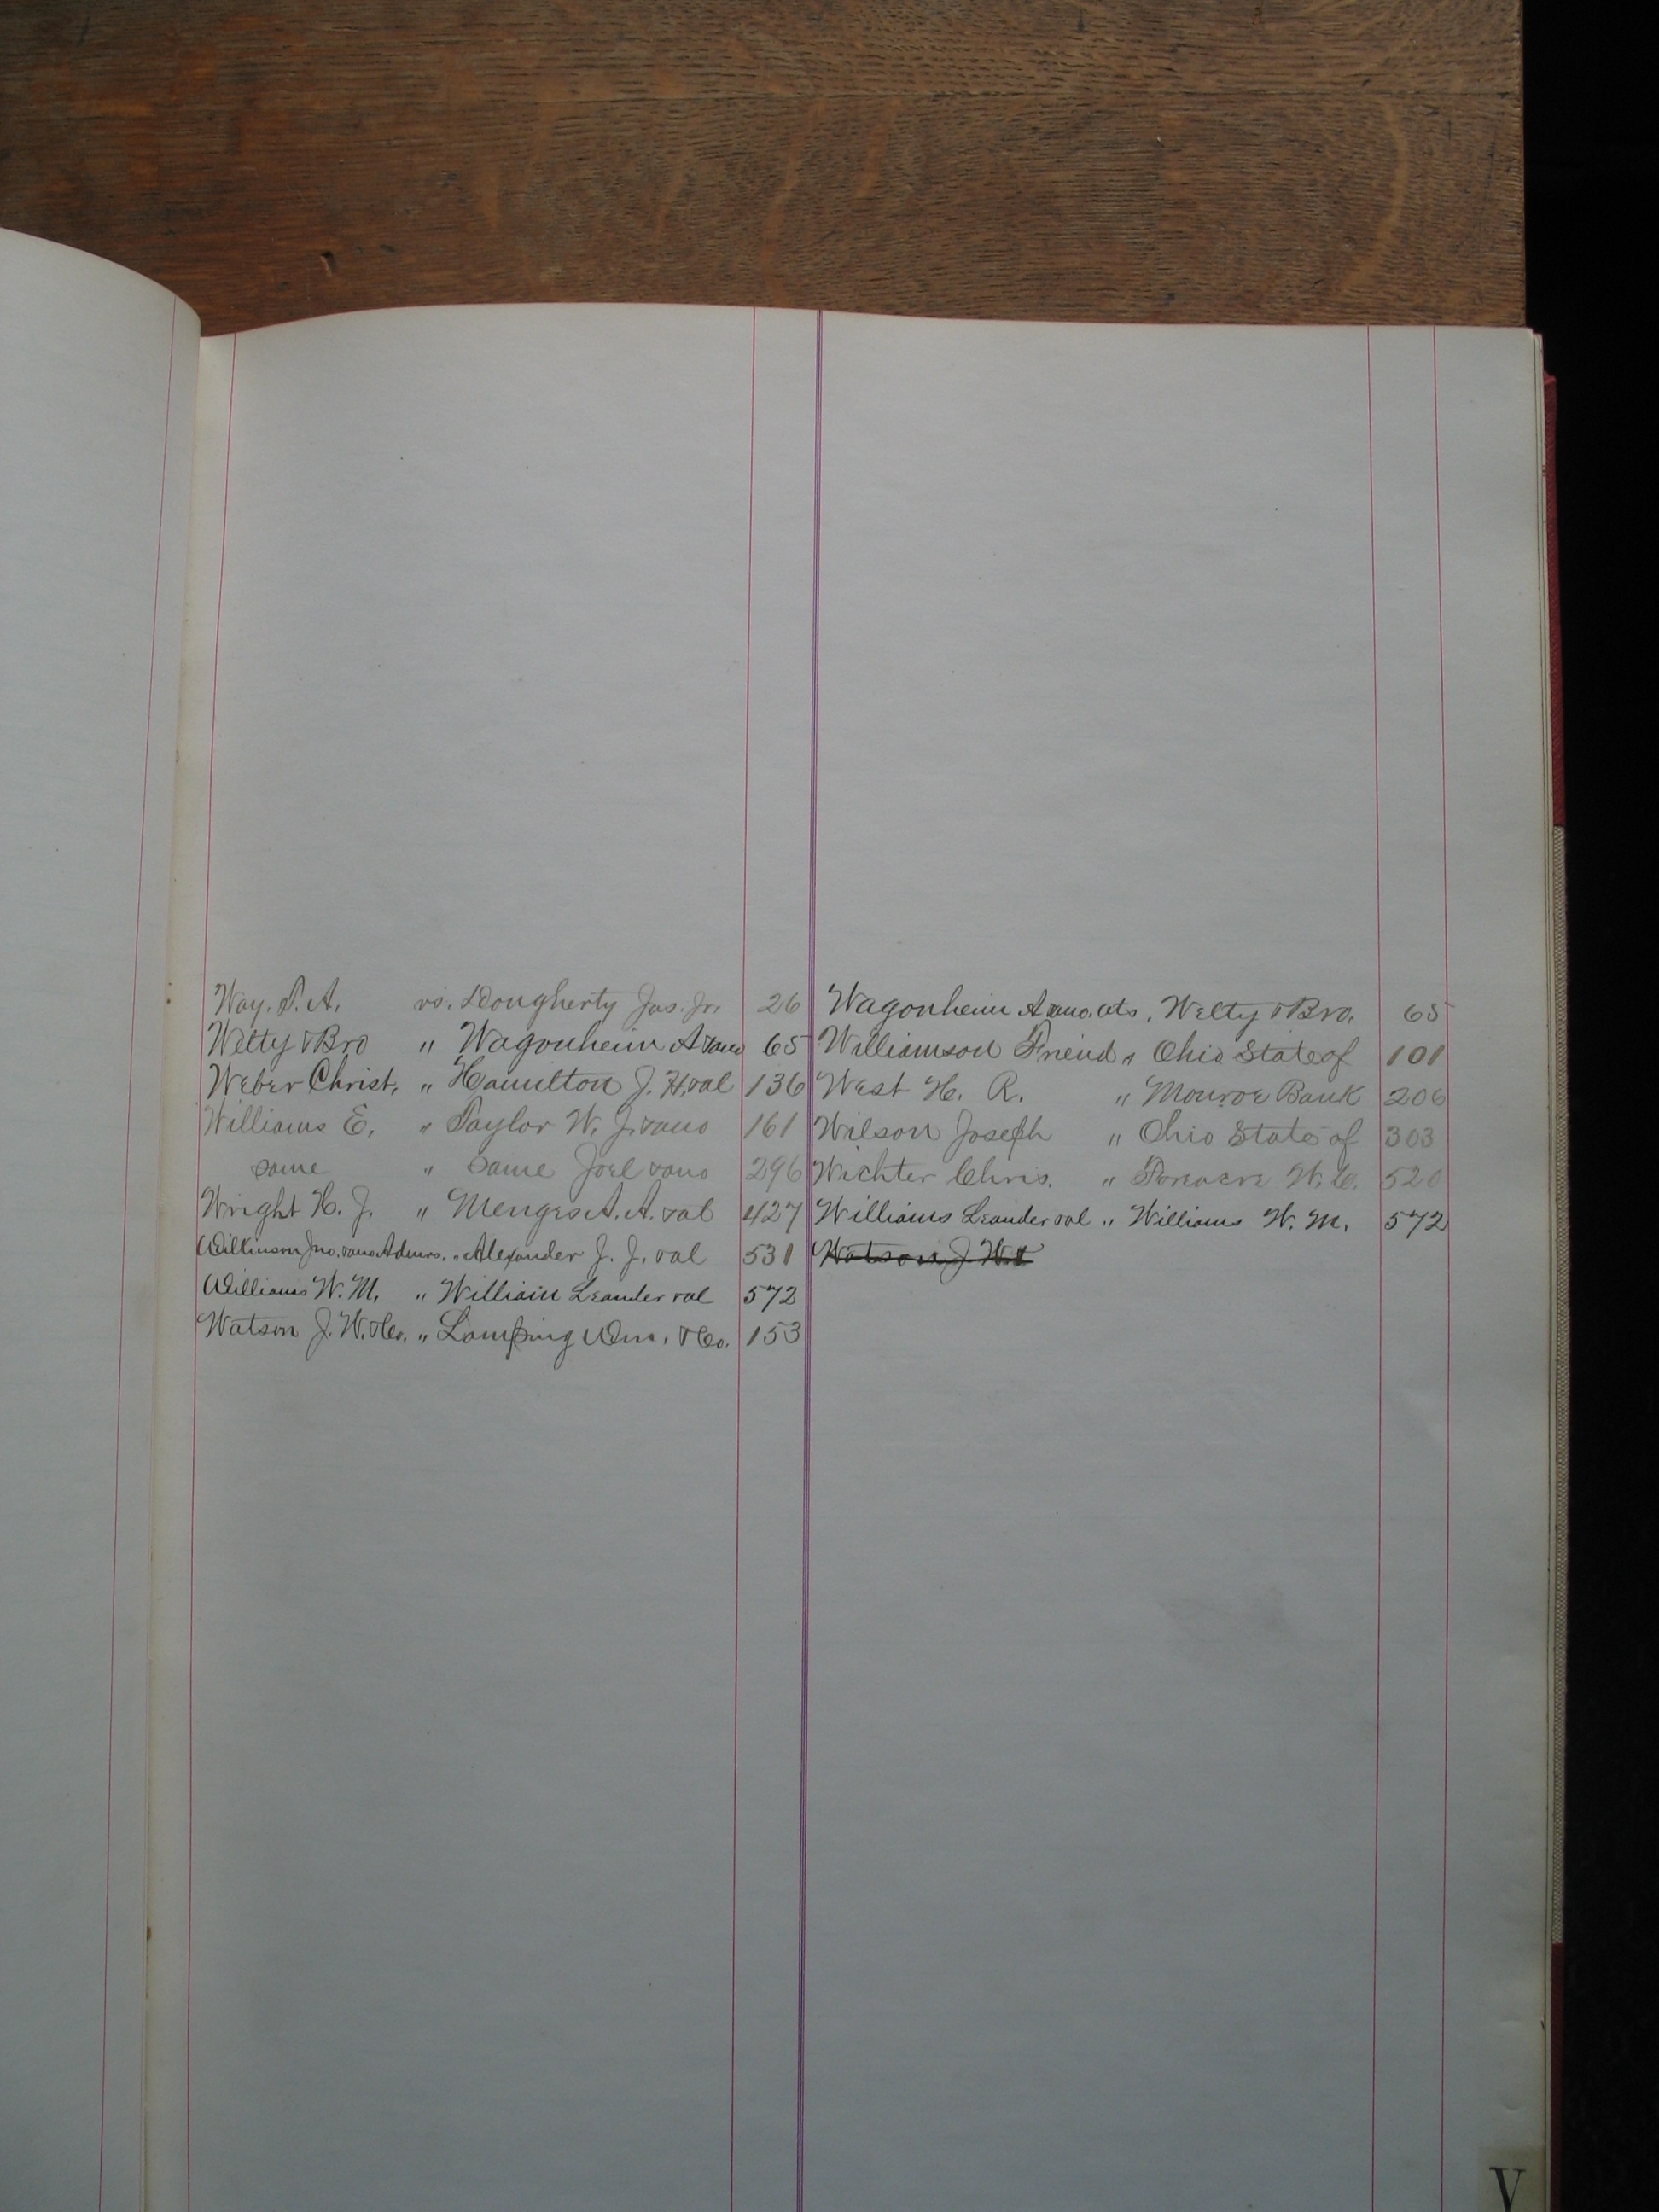 Way. S. A. vs. Dougherty Jas. Jr. 26
Welty & Bro " Wagonheim A & ano 65
Weber Christ. " Hamilton J. H. & al 136
Williams E. " Taylor W. J. & ano 161
same " same Joel & ano 296
Wright H. J. " Menges A. A. & al 427
Wilkinson Jno. & ano Admrs. " Alexander J. J. & al 531
Williams W. M. " William Leander & al 572
Watson J. W. & Co. " Lamping Wm. & Co. 153
Wagonheim A & ano. ats. Welty & Bro. 65
Williamson Friend " Ohio State of 101
West H. R. " Monroe Bank 206
Wilson Joseph " Ohio State of 303
Wichter Chris. " W. C. 520
Williams Leander & al " Williams W. M. 572
Watson J. W. &
V